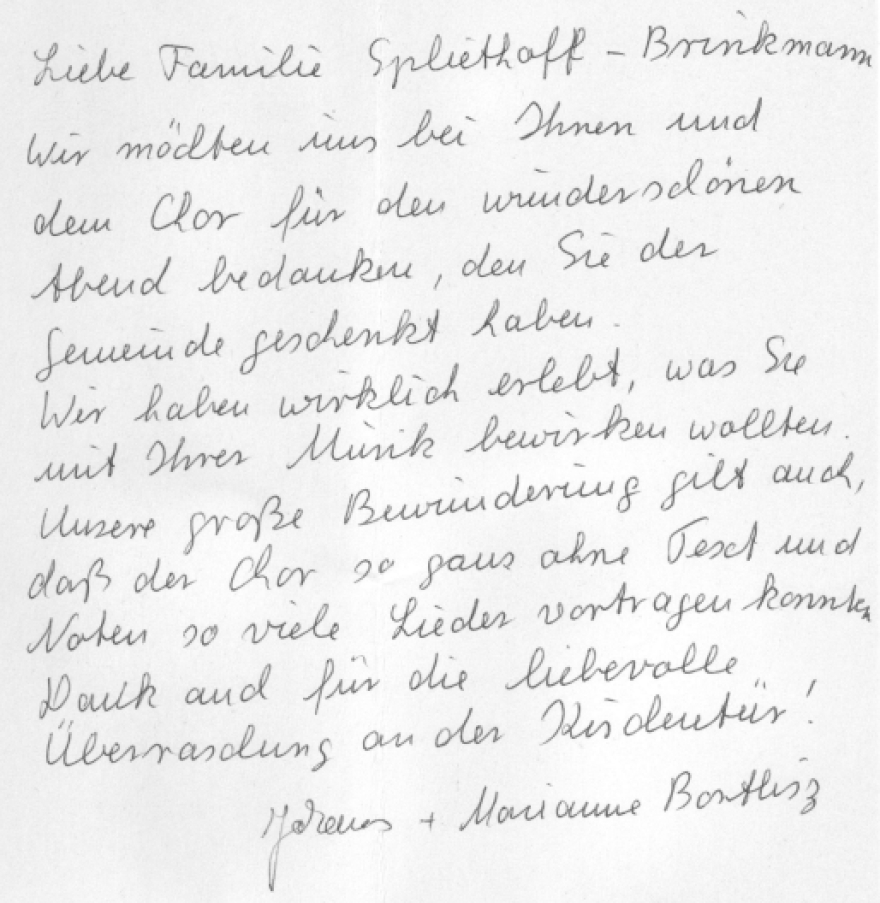 Liebe Familie Spliethoff - Brinkmann
Wir möchten uns bei Ihnen und
dem Chor für den wunderschönen
Abend bedanken, den Sie der
Gemeinde geschenkt haben.
Wir haben wirklich erlebt, was Sie
mit Ihrer Musik bewirken wollten.
Unsere große Bewunderung gilt auch,
daß der Chor so ganz ohne Text und
Noten so viele Lieder vortragen konnte.
Dank auch für die liebevolle
Überraschung an der Kirchentür!
+ Marianne